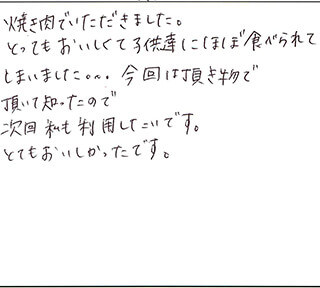 焼き肉でいただきました。
とってもおいしくて子供達にほぼ食べられて
しまいました…。今回は頂き物で
頂いて知ったので
次回私も利用したいです。
とてもおいしかったです。